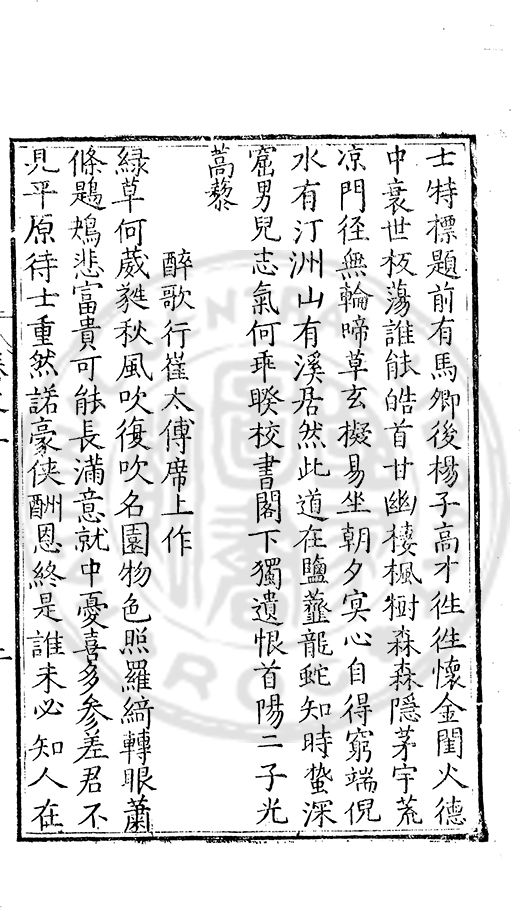 士特標題前有馬卿後楊子高才徃徃懷金閨火德
中衰世板蕩誰能皓首甘幽棲楓樹森森隱茅宇荒
凉門徑無輪啼草玄擬易坐朝夕冥心自得窮端倪
水有汀洲山有溪居然此道在鹽虀龍蛇知時蟄深
窟男兒志氣何乖睽校書閣下獨遺恨首陽二子光
蒿藜
醉歌行崔太傅席上作
緑草何葳蕤秋風吹復吹名園物色照羅綺轉眼蕭
條鶗鴂悲富貴可能長滿意就中憂喜多參差君不
見平原待士重然諾豪俠酬恩終是誰未必知人在